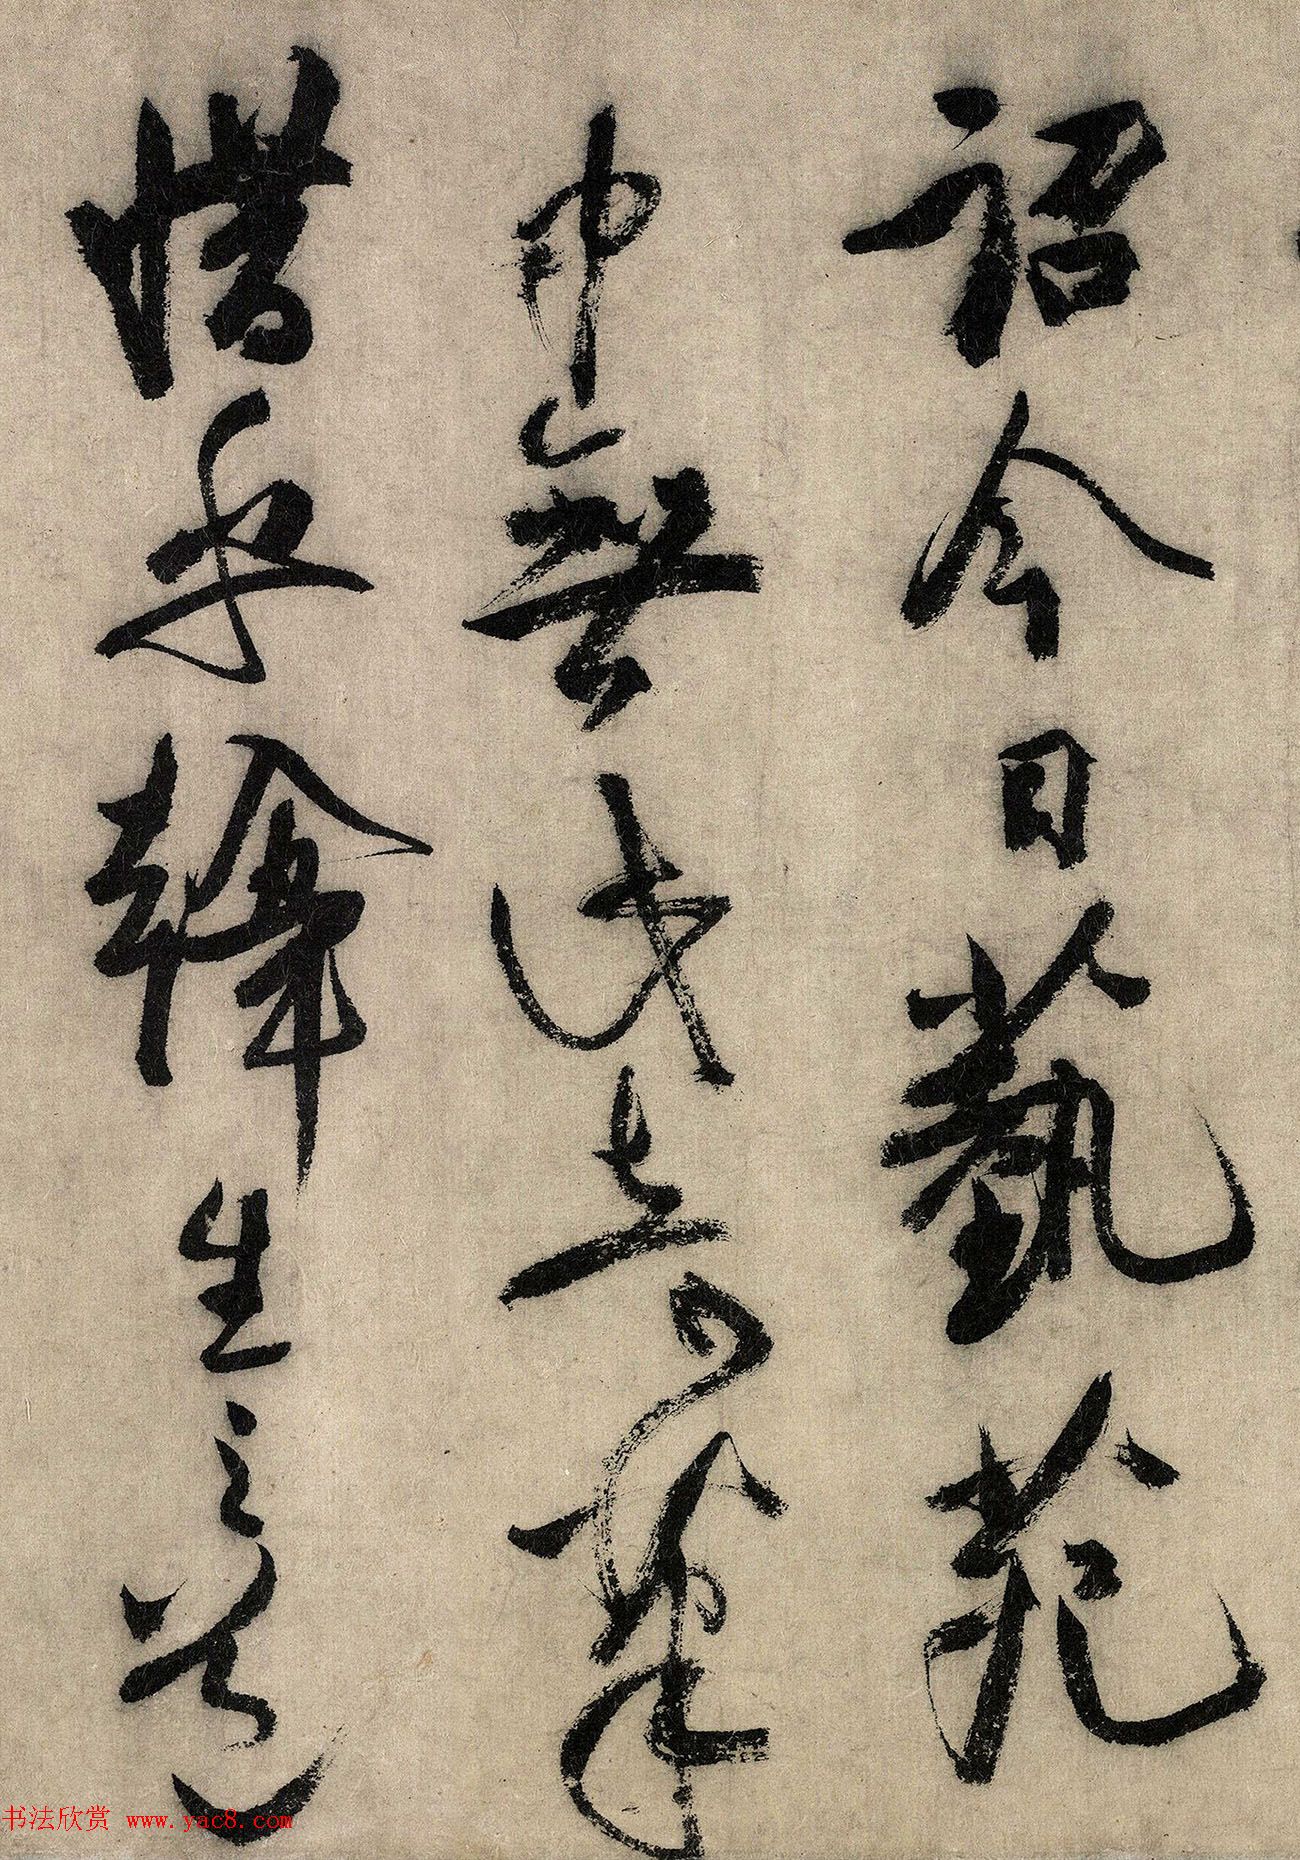 詔今日藝苑
中無此奇筆
惜乎韓生之道
书法欣赏 www.yac8.com